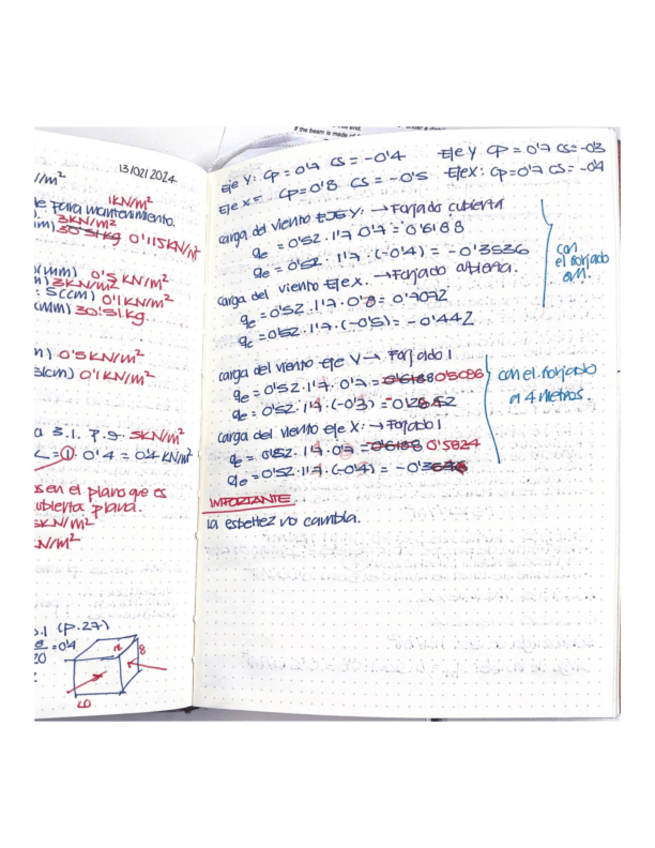 If the beam is made of
13/02/2024
1/m²
1KN/m²
e para mantenimiento.
3KN/m²
30'51kg 0'115KN/m
(mm) 0'5 KN/m²
3KN/m²
: 5(cm) 0'1KN/m²
(mm) 30'51kg.
0'5KN/m²
3(cm) 0'1KN/m²
a 3.1. P.9. 5KN/m²
=1. 0'4 = 0'4 KN/m²
s en el plano que es
ubierta plana.
5KN/m²
KN/m²
(p.27)
8
20
=0'4
8
6
Eje Y: Cp = 0'7 Cs = -0'4 Eje Y Cp = 0'7 Cs = -0'3
Eje X = Cp=0'8 Cs = -0'5 Eje X: Cp=0'7 Cs = -0'4
carga del viento Eje Y: → Forjado cubierta
qe = 0'52 · 1'7 0'7 = 0'6188
qe = 0'52 · 1'7 · (-0'4) = -0'3536
carga del viento Eje X. → Forjado abierta.
qe = 0'52 · 1'7 · 0'8 = 0'7072
qe = 0'52 · 1'7 · (-0'5) = -0'442
con
el forjado
8m.
carga del viento eje Y → Forjado 1
qe = 0'52 · 1'7 · 0'7 = 0'6188 0'5086
qe = 0'52 · 1'7 · (-0'3) =
carga del viento eje X: → Forjado 1
qe = 0'52 · 1'7 · 0'7 = 0'6188 0'5824
qe = 0'52 · 1'7 · (-0'4) = -0'3
con el forjado
a 4 metros.
IMPORTANTE
la esbeltez no cambia.